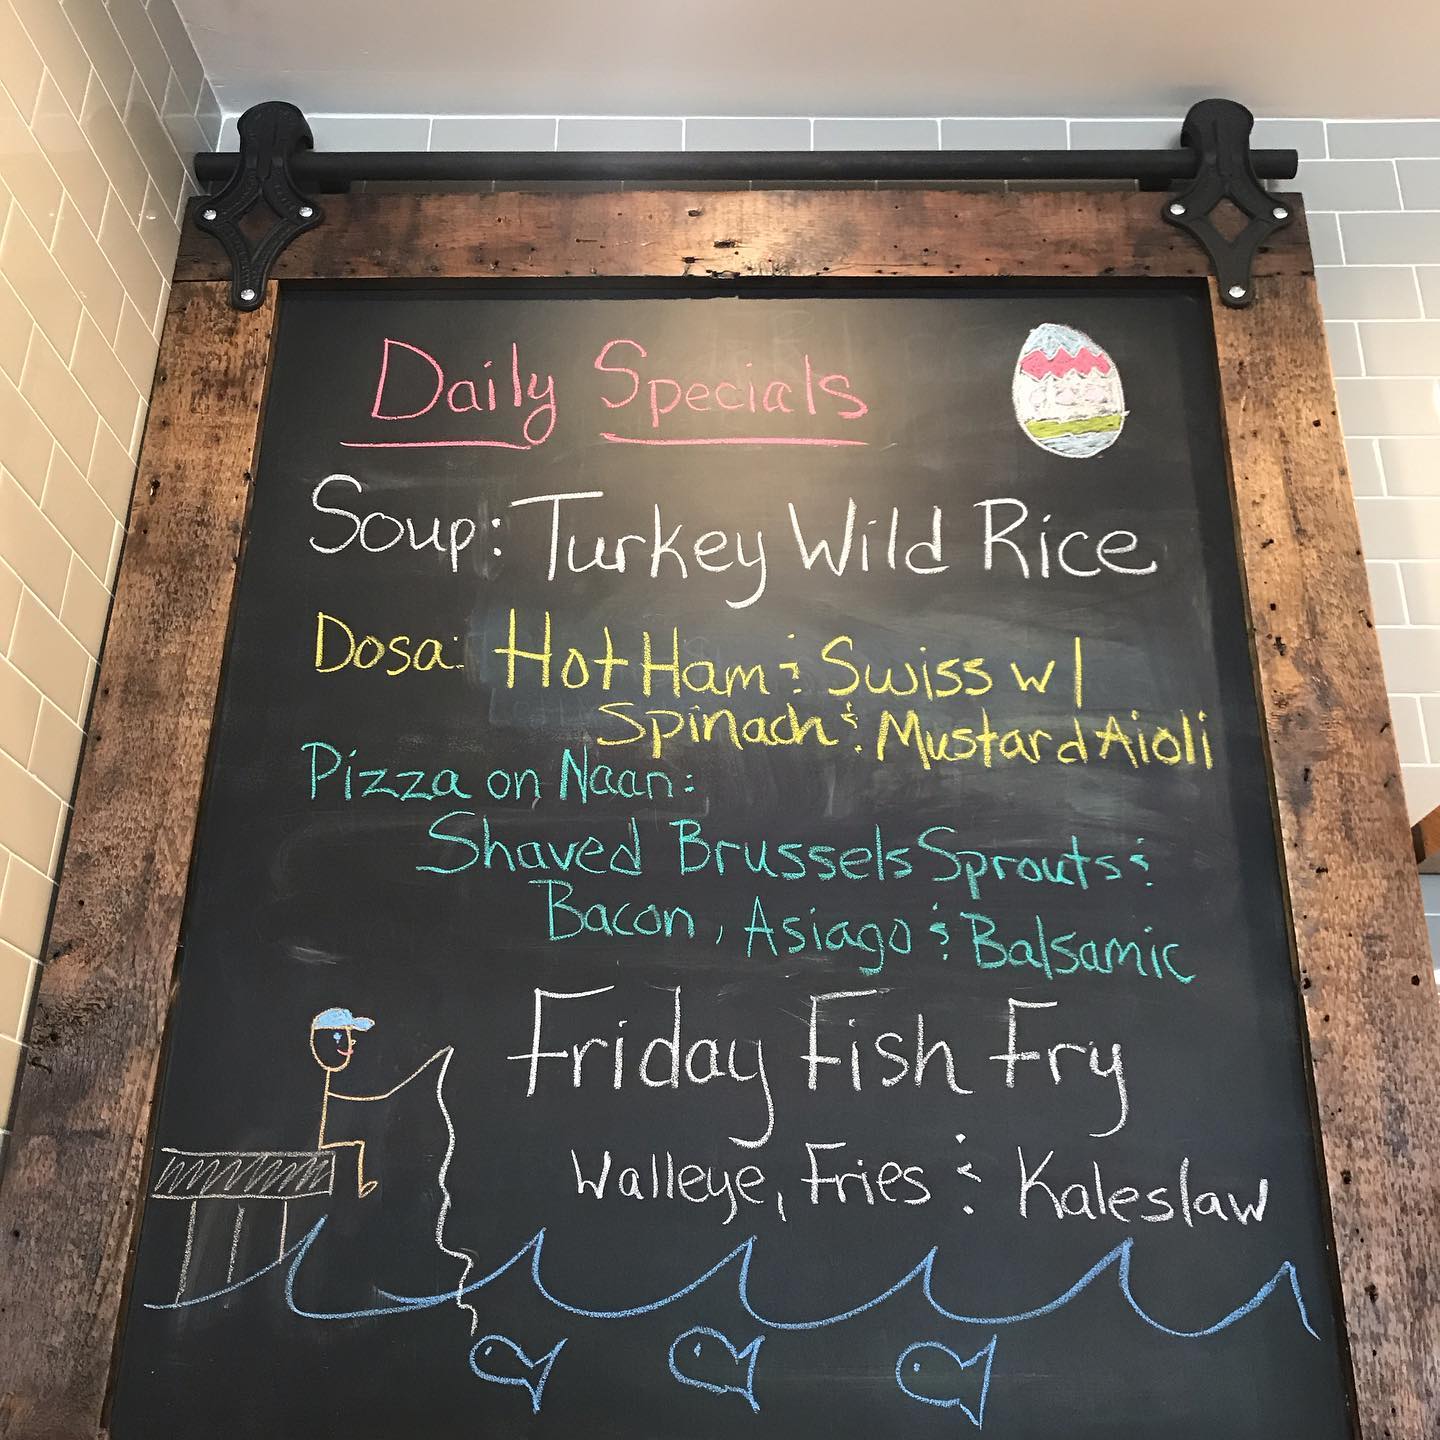 Daily Specials
Soup: Turkey Wild Rice
Dosa: Hot Ham & Swiss w/
Spinach & Mustard Aioli
Pizza on Naan:
Shaved Brussels Sprouts &
Bacon, Asiago & Balsamic
Friday Fish Fry
Walleye, Fries & Kaleslaw